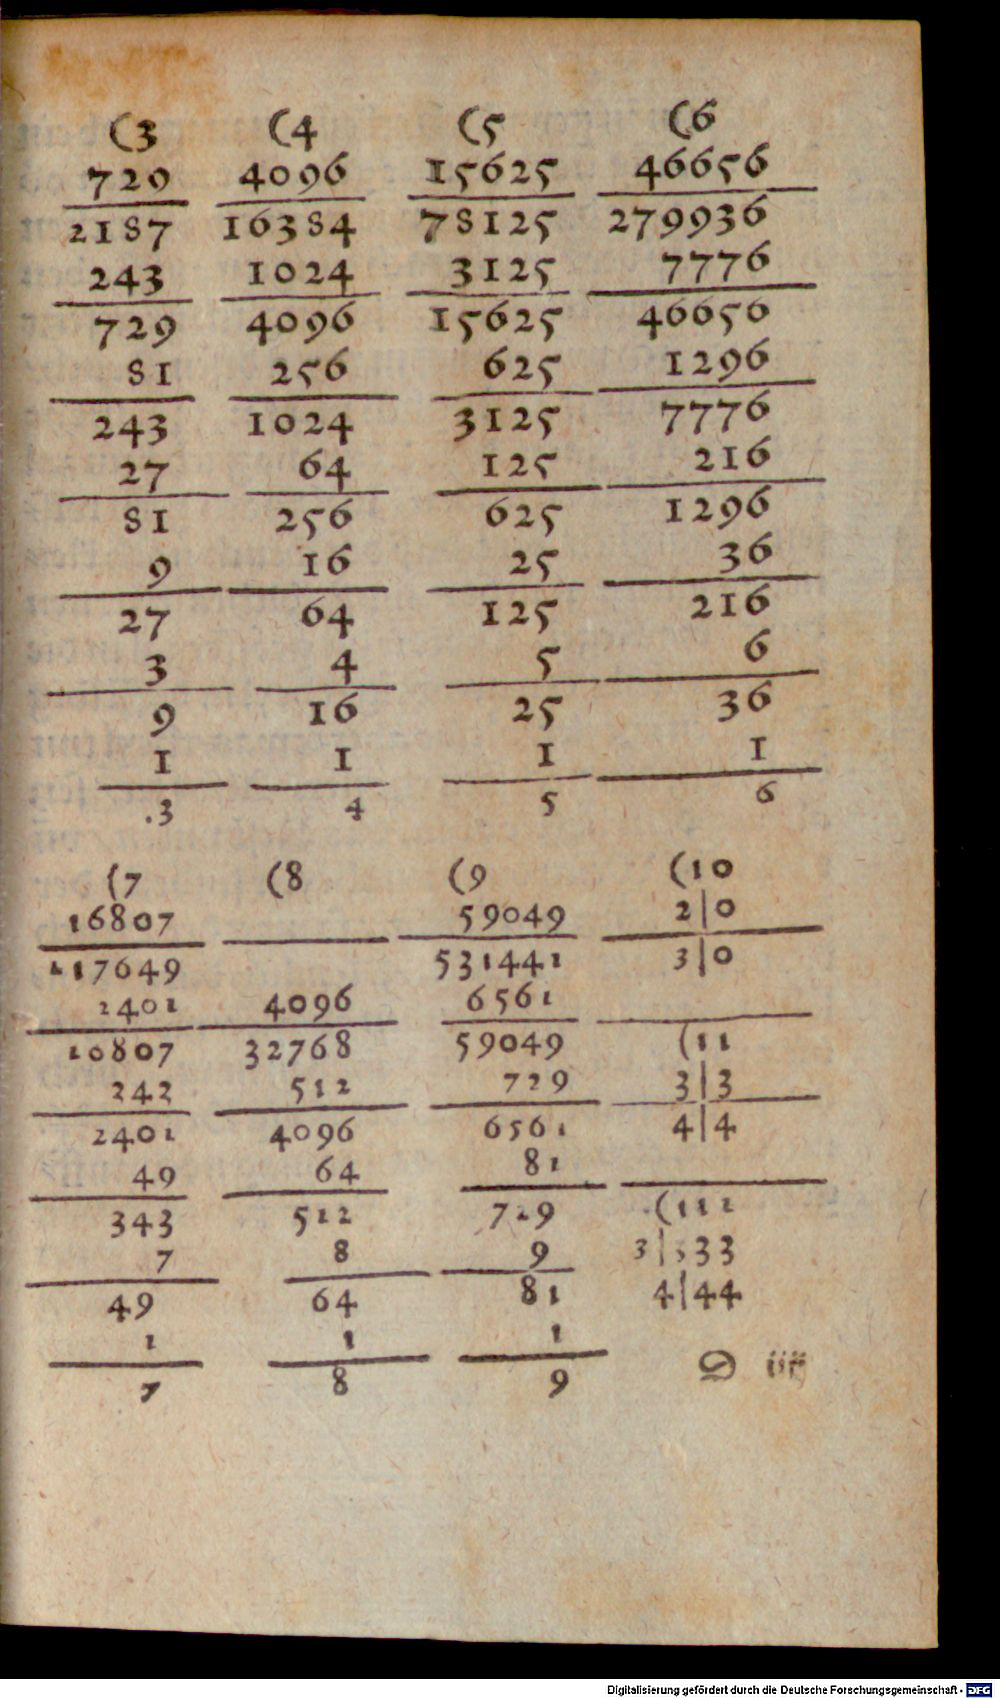 (3 (4 (5 (6
729 4096 15625 46656
2187 16384 78125 279936
243 1024 3125 7776
729 4096 15625 46656
81 256 625 1296
243 1024 3125 7776
27 64 125 216
81 256 625 1296
9 16 25 36
27 64 125 216
3 4 5 6
9 16 25 36
1 1 1 1
.3 4 5 6
(7 (8 (9 (10
16807 59049 2|0
117649 531441 3|0
2401 4096 6561
10807 32768 59049 (11
242 512 729 3|3
2401 4096 6561 4|4
49 64 81
343 512 729 (111
7 8 9 3|333
49 64 81 4|44
1 1 1
7 8 9
D iiij
Digitalisierung gefördert durch die Deutsche Forschungsgemeinschaft - DFG